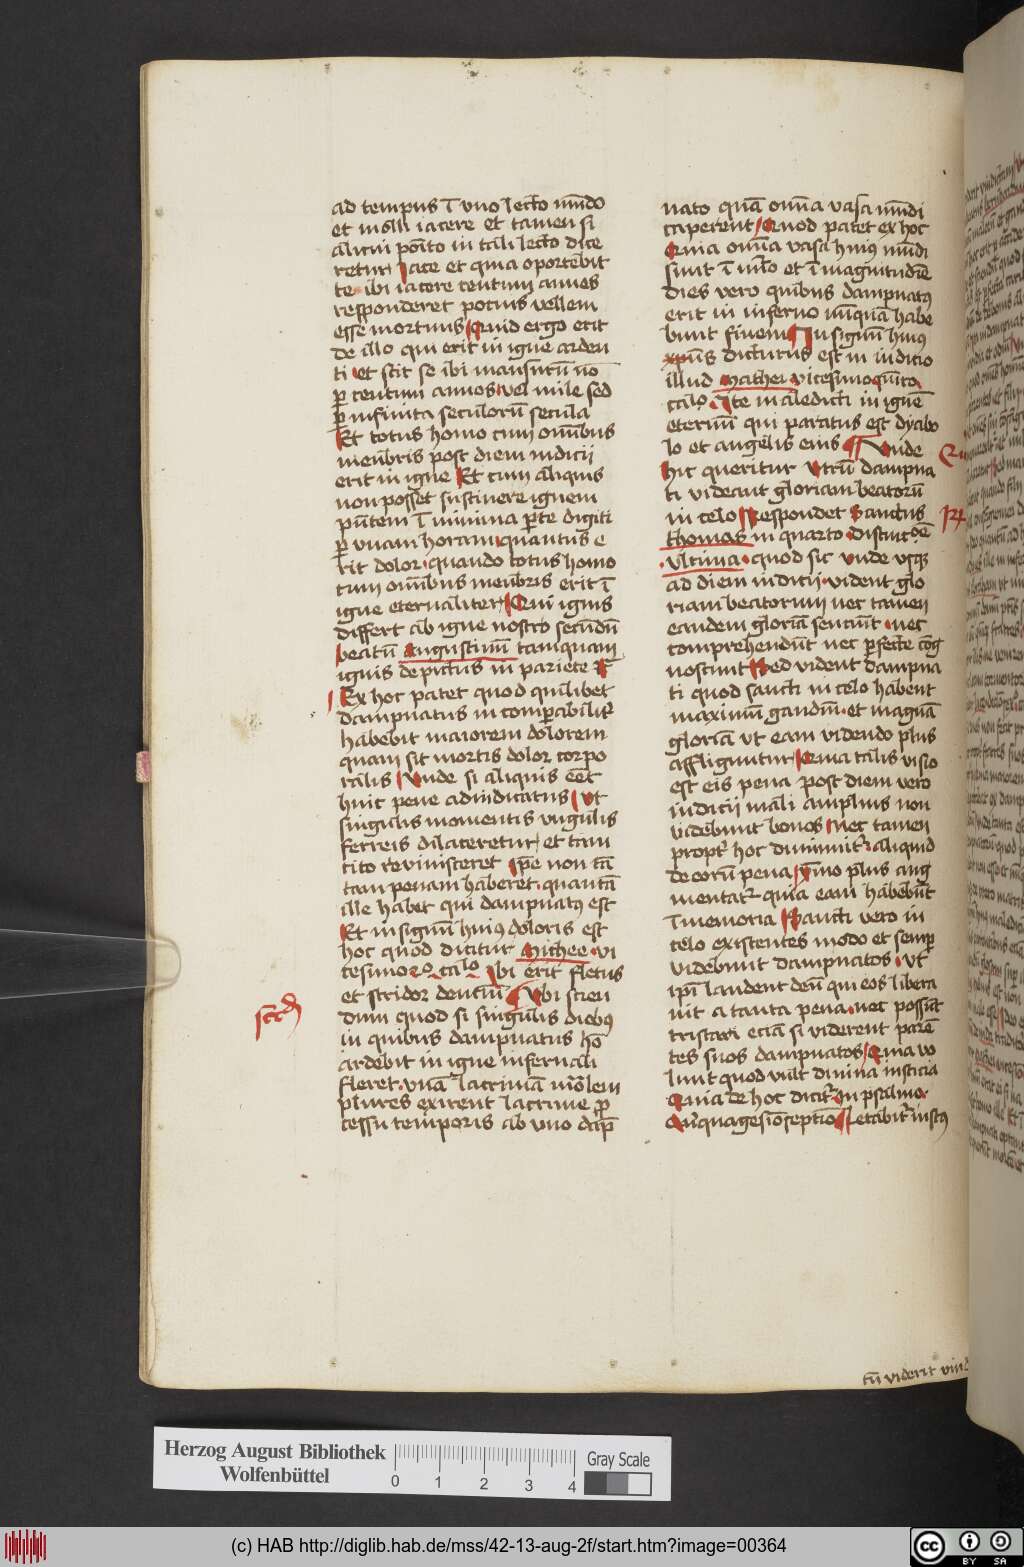 ad tempus ī vno lecto mūdo
et molli iacere et tamen si
alicui pōito in tali lecto dice
retur Iace et quia oportebit
te ibi iacere centum annes
responderet potius vellem
esse mortuus Quid ergo erit
de illo qui erit in igne arden
ti et scit se ibi mansurū nō
ꝑ centum annos vel mile sed
ꝑ infinita seculorū secula
Et totus homo cum omībus
menbris post diem iudicii
erit in igne Et cum aliquis
non posset sustinere ignem
pūtem ī minima parte digiti
ꝑ vnam horam quantus e
rit dolor quando totus homo
cum omībus menbris erit ī
igne eternaliter Qui ignis
differt ab igne nostro secūdū
beatū Augustinū tamquam
ignis depictus in pariete
Ex hoc patet quod quilibet
dampnatus incomꝑabilitʳ
habebit maiorem dolorem
quam sit mortis dolor corpo
ralis Vnde si aliquis eēt
huic pene adiudicatus Vt
singulis momentis vngulis
ferreis dilaceretur et tun
cito reviuisceret ipe non tā
tam penam haberet quantā
ille habet qui dampnatꝯ est
Et in signū huiꝯ doloris est
hoc quod dicitur Mathee vi
cesimo 2o calo Ibi erit fletus
et stridor dentiū Vbi scien
dum quod si singulis diebꝯ
in quibus dampnatus hō
ardebit in igne infernali
fleret vnā lacrimā n̄o lem
plures exirent lacrime ꝑ
cessu temporis ab vno dāp
nato quā omīa vasa mūdi
caperent Quod patet ex hoc
Quia omīa vasa huiꝯ mūdi
sunt ī nūo et ī magnitudīe
dies vero quibus dampnatꝯ
erit in inferno nūquā habe
bunt finem In signū huius
xpūs dicturus est in iudicio
illud Mathei vicesimo quīto
calo Ite maledicti in ignē
eternū qui paratus est dyabo
lo et angelis eius Vnde
hic queritur Vtrū dampna
ti videant gloriam beatorū
in celo Respondet Sanctus
thomas in quarto distinctōē
vltima quod sic vnde vsqꝫ
ad diem iudicii vident glo
riam beatorum nec tamen
eandem gloriā senciūt nec
comprehendūt nec perfecte cōg
noscunt Sed vident dampna
ti quod sancti in celo habent
maximū gaudiū et magnā
gloriā vt eam videndo plus
affliguntur Quia talis visio
est eis pena post diem vero
iudicii mali amplius non
videbunt bonos Nec tamen
proptʳ hoc diminuitʳ aliquid
de eorū pena ymo plus aug
mentatʳ quia eam habebūt
ī memoria Sancti vero in
celo existentes modo et semꝑ
videbunt dampnatos vt
ipī laudent deū qui eos libera
uit a tanta pena nec possūt
tristari eciā si viderent parē
tes suos dampnatos Quia vo
lunt quod vult diuina iusticia
Quia de hoc dicitʳ in psalmo
Quīquagesīoseptīo Letabitʳ iustꝯ
Herzog August Bibliothek
Wolfenbüttel
0 1 2 3 4
Gray Scale
(c) HAB http://diglib.hab.de/mss/42-13-aug-2f/start.htm?image=00364
cc BY SA